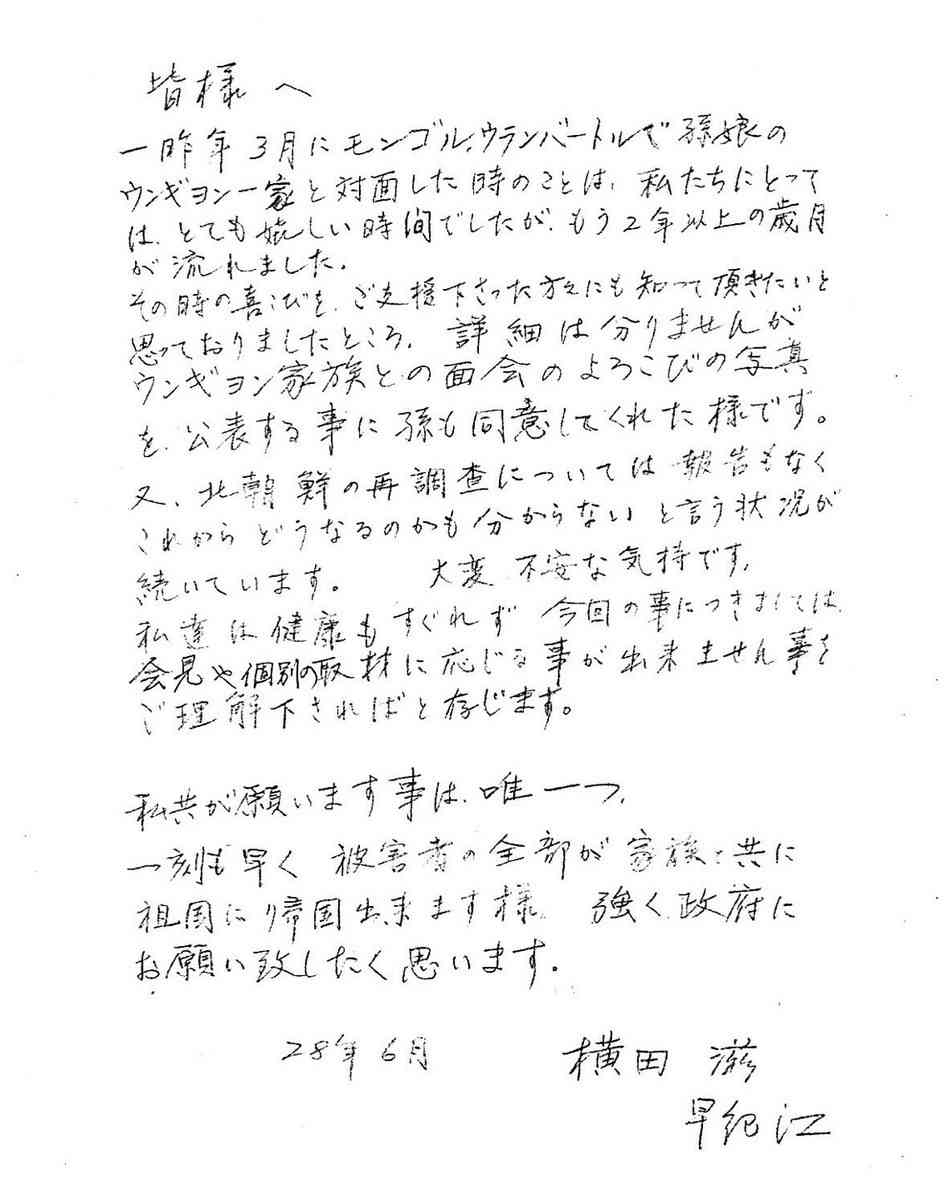 皆様へ
一昨年3月にモンゴル、ウランバートルで孫娘の
ウンギョン一家と対面した時のことは、私たちにとって
は、とても嬉しい時間でしたが、もう2年以上の歳月
が流れました。
その時の喜こびを、ご支援下さった方々にも知って頂きたいと
思っておりましたところ、詳細は分りませんが
ウンギョン家族との面会のよろこびの写真
を、公表する事に孫も同意してくれた様です。
又、北朝鮮の再調査については報告もなく
これからどうなるのかも分からないと言う状況が
続いています。 大変 不安な気持です。
私達は健康もすぐれず 今回の事につきましては、
会見や個別の取材に応じる事が出来ません事を
ご理解下さればと存じます。
私共が願います事は、唯一つ、
一刻も早く 被害者の全部が家族と共に
祖国に帰国出来ます様、強く政府に
お願い致したく思います。
28年6月 横田 滋
早紀江